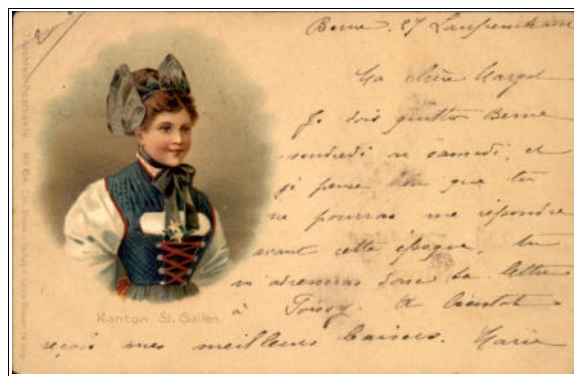 Berne. 27
Ma chère Margot
Je dois quitter Berne
vendredi ou samedi, et
je pense bien que tu
ne pourras me répondre
avant cette époque, tu
m'adresseras donc ta lettre
à A bientôt
reçois mes meilleurs baisers. Marie
Kanton St. Gallen.